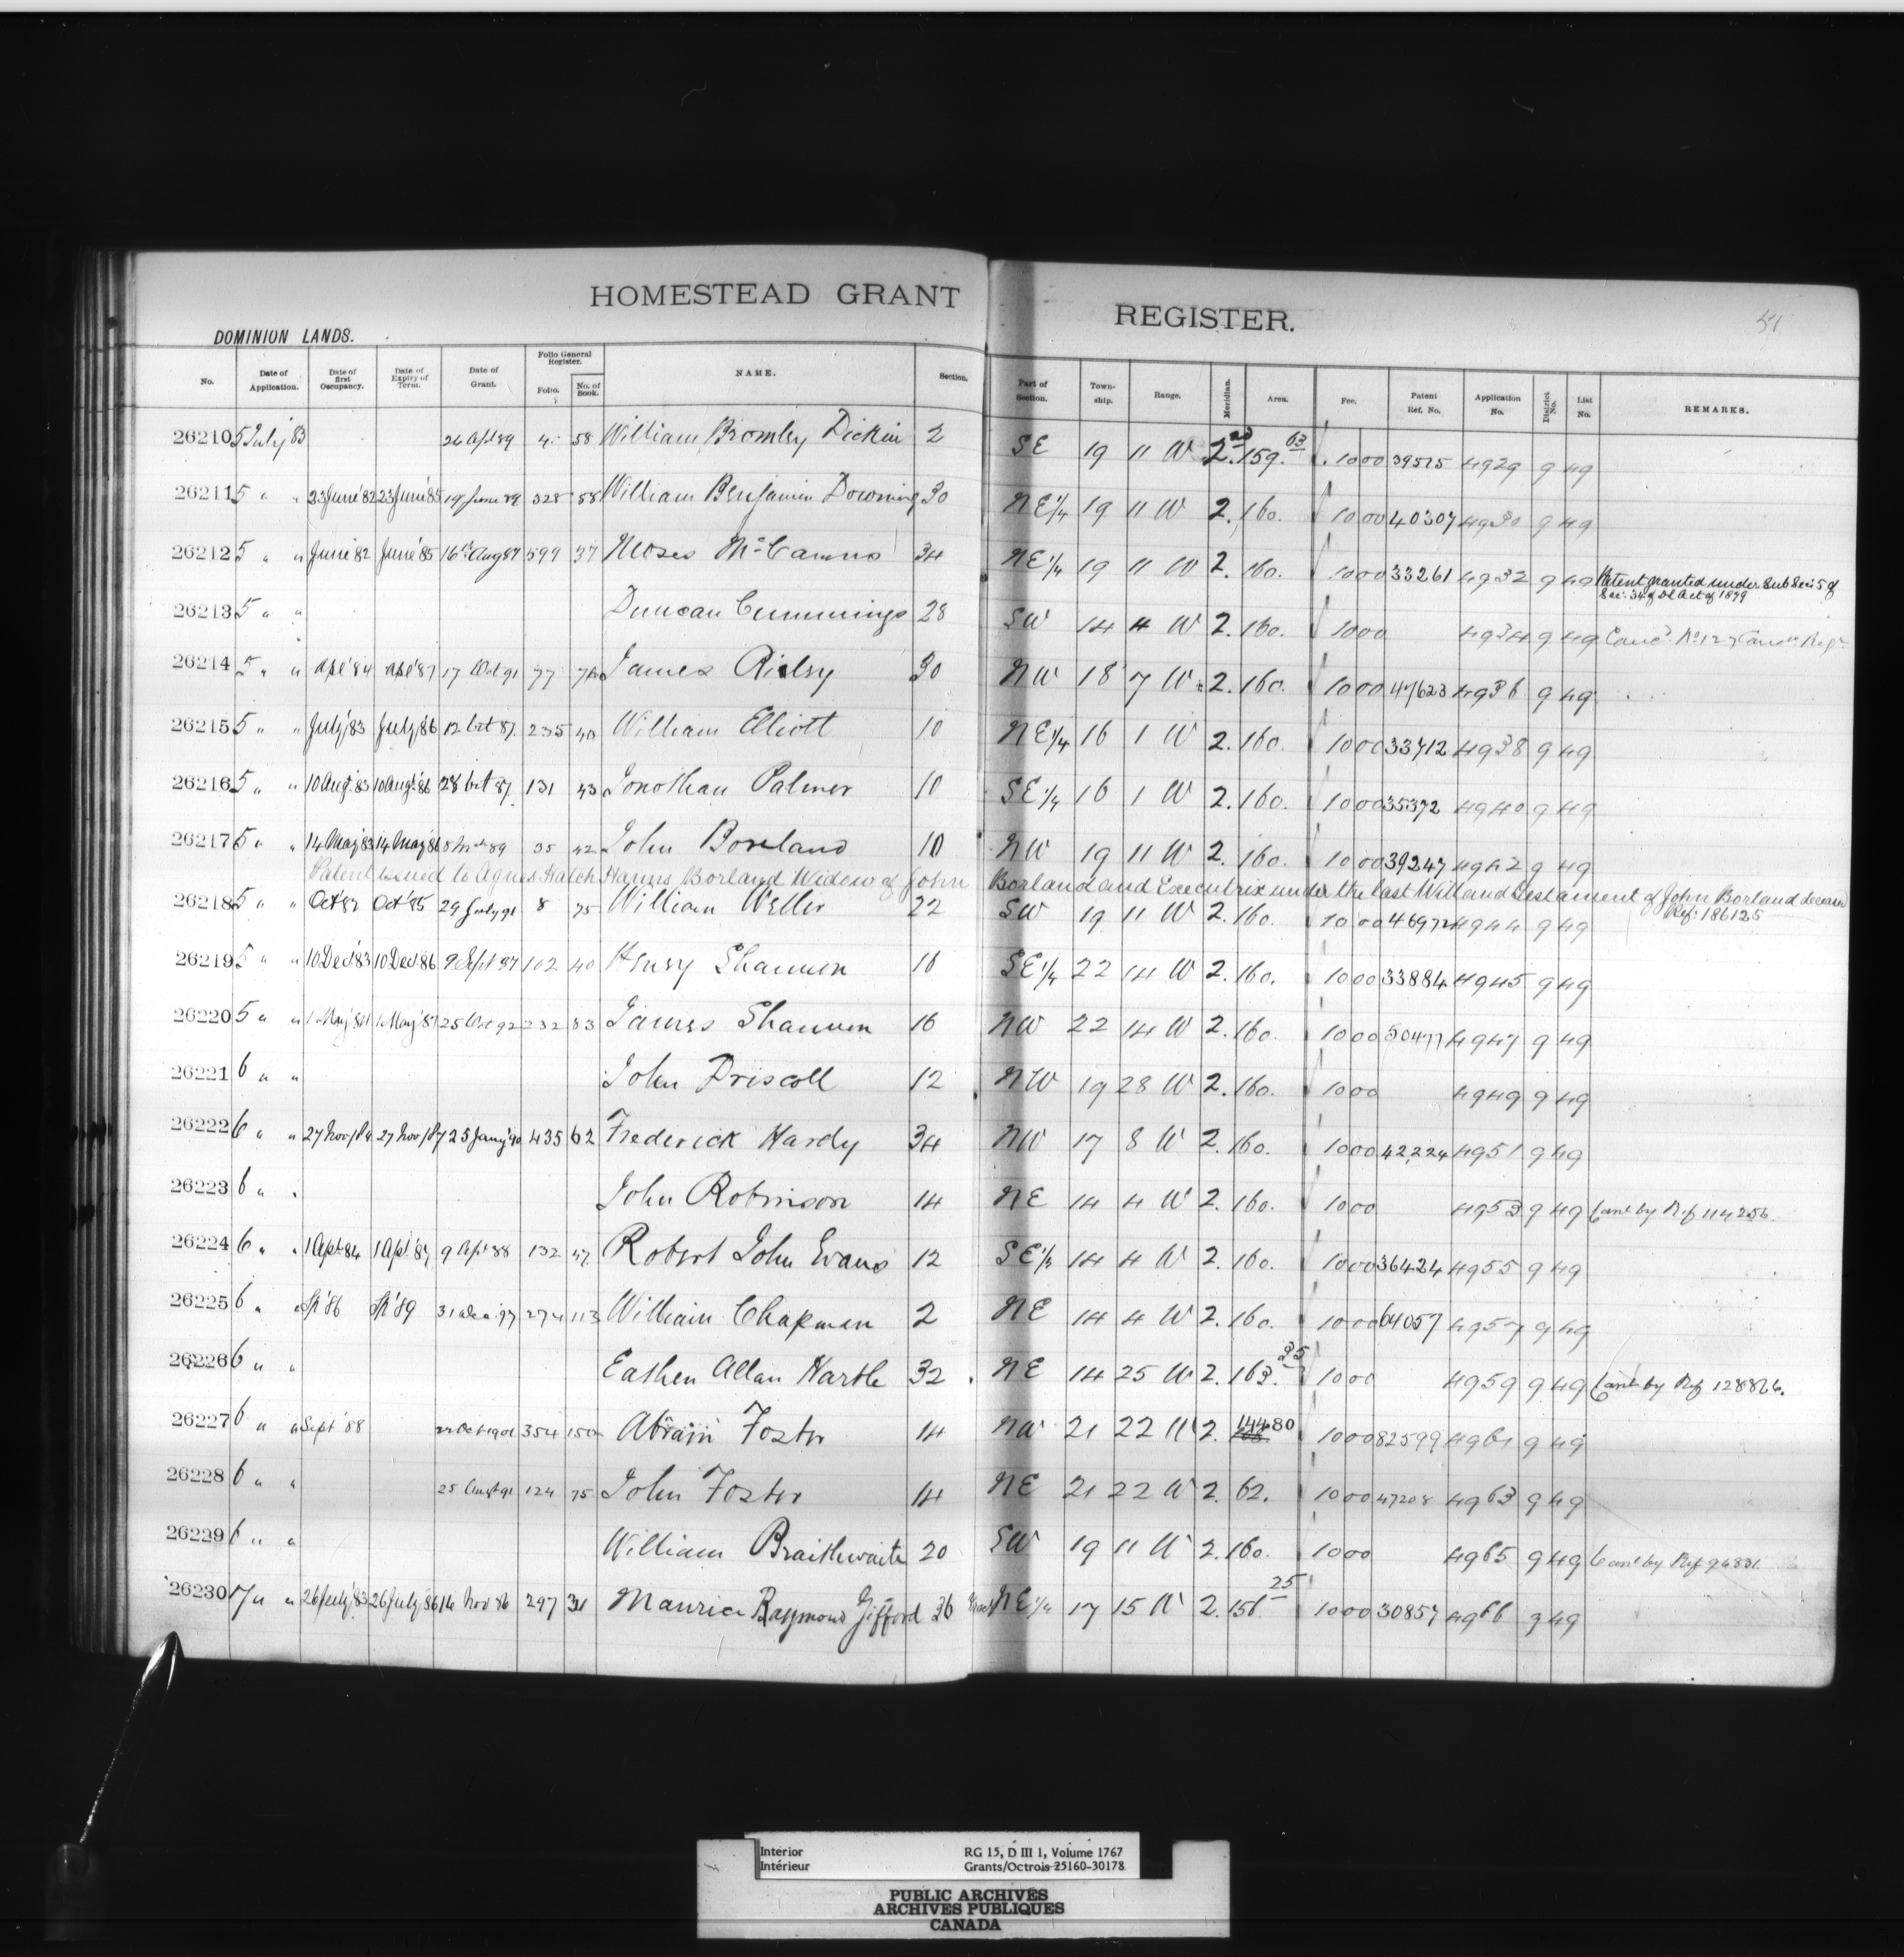 HOMESTEAD GRANT REGISTER.
51
DOMINION LANDS.
No. Date of Application. Date of first Occupancy. Date of Expiry of Term. Date of Grant. Folio General Register. Folio. No. of Book. NAME. Section. Part of Section. Township. Range. Meridian. Area. Fee. Patent Ref. No. Application No. District No. List No. REMARKS.
26210 5 July 83 26 Apl 89 4 58 William Bromley Dickin 2 SE 19 11 W 2nd 159.63 1000 39575 4929 9 49
26211 5 " " 23 June '82 23 June '85 19 June 89 328 58 William Benjamin Downing 30 NE 1/4 19 11 W 2. 160. 1000 40307 4930 9 49
26212 5 " " June '82 June '85 16th Aug 87 599 37 Moses 34 NE 1/4 19 11 W 2. 160. 1000 33261 4932 9 49 Patent granted under Sub Sec: 5 of
Sec: 34 of DL Act of 1879
26213 5 " " Duncan Cummings 28 SW 14 4 W 2. 160. 1000 4934 9 49
26214 5 " " Apl '84 Apl '87 17 Oct 91 77 76 James Rilsy 30 NW 18 7 W 2. 160. 1000 47623 4936 9 49
26215 5 " " July '83 July '86 12 Oct 87. 235 40 William Elliott 10 NE 1/4 16 1 W 2. 160. 1000 33712 4938 9 49
26216 5 " " 10 Aug. '83 10 Aug. '86 28 Oct 87. 131 43 Jonothan Palmer 10 SE 1/4 16 1 W 2. 160. 1000 35372 4940 9 49
26217 5 " " 14 May '83 14 May '86 89 35 42 John Borland 10 NW 19 11 W 2. 160. 1000 39247 4942 9 49
Patent issued to Agnes Hatch Hanns Borland Widow of John Borland and Executrix under the last Will and Testament of John Borland deceased
Ref: 186125
26218 5 " " Oct '82 Oct '85 29 July 91 8 75 William Weller 22 SW 19 11 W 2. 160. 1000 46972 4944 9 49
26219 5 " " 10 Dec '83 10 Dec '86 9 Sept 87 102 40 Henry Shannon 16 SE 1/4 22 14 W 2. 160. 1000 33884 4945 9 49
26220 5 " " 1 May '84 1 May '87 25 Oct 92 232 83 James Shannon 16 NW 22 14 W 2. 160. 1000 50477 4947 9 49
26221 6 " " John Driscoll 12 NW 19 28 W 2. 160. 1000 4949 9 49
26222 6 " " 27 Nov/84 27 Nov/87 25 Jany '90 435 62 Frederick Hardy 34 NW 17 8 W 2. 160. 1000 42224 4951 9 49
26223 6 " John Robinson 14 NE 14 4 W 2. 160. 1000 4953 9 49 Canc by Ref 114256.
26224 6 " " 1 Apl 84 1 Apl '87 9 Apl 88 132 47. Robert John Evans 12 SE 1/4 14 4 W 2. 160. 1000 36424 4955 9 49
26225 6 " " Sp '86 Sp '89 31 Dec '97 274 113 William Chapman 2 NE 14 4 W 2. 160. 1000 64057 4957 9 49
26226 6 " " Eathen Allan Hartle 32 NE 14 25 W 2. 163.35 1000 4959 9 49 Canc by Ref 128826.
26227 6 " " Sept '88 22 Oct 1901 354 150 Abram Foster 14 NW 21 22 W 2. 144.80 1000 82599 4961 9 49
26228 6 " " 25 Augt 91 124 75 John Foster 14 NE 21 22 W 2. 62. 1000 47208 4963 9 49
26229 6 " " William Braithwaite 20 SW 19 11 W 2. 160. 1000 4965 9 49 Canc by Ref 96831.
26230 7 " " 26 July '83 26 July '86 16 Nov 86 297 31 Maurice Raymond Gifford 36 NE 1/4 17 15 W 2. 156.25 1000 30857 4966 9 49
Interior
Intérieur
RG 15, D III 1, Volume 1767
Grants/Octrois 25160-30178
PUBLIC ARCHIVES
ARCHIVES PUBLIQUES
CANADA